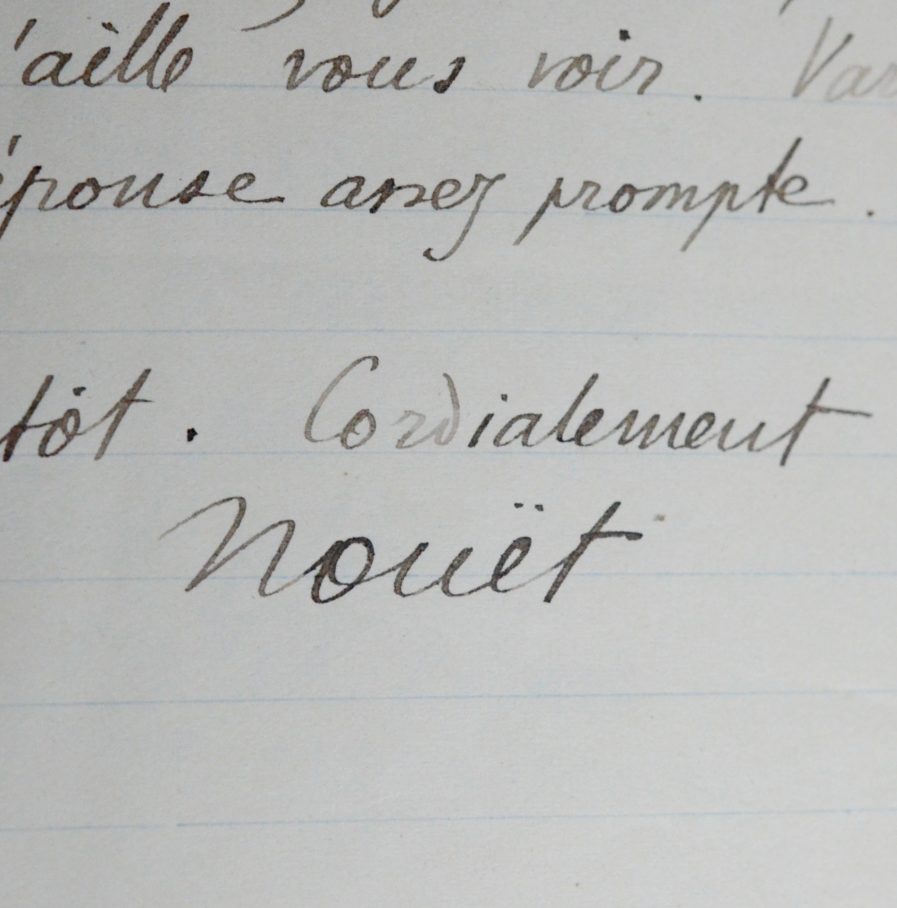 'aille vous voir. Var
éponse assez prompte.
tôt. Cordialement
Nouët